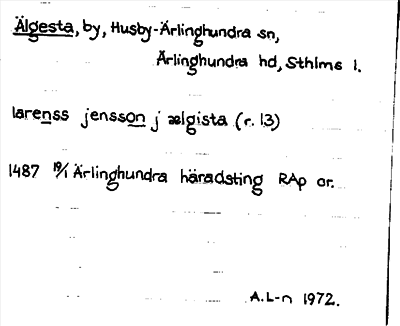 Älgesta, by, Husby-Ärlinghundra sn,
Ärlinghundra hd, Sthlms l.
larenss jensson j ælgista (r. 13)
1487 19/1 Ärlinghundra häradsting RAp or.
A.L-n 1972.